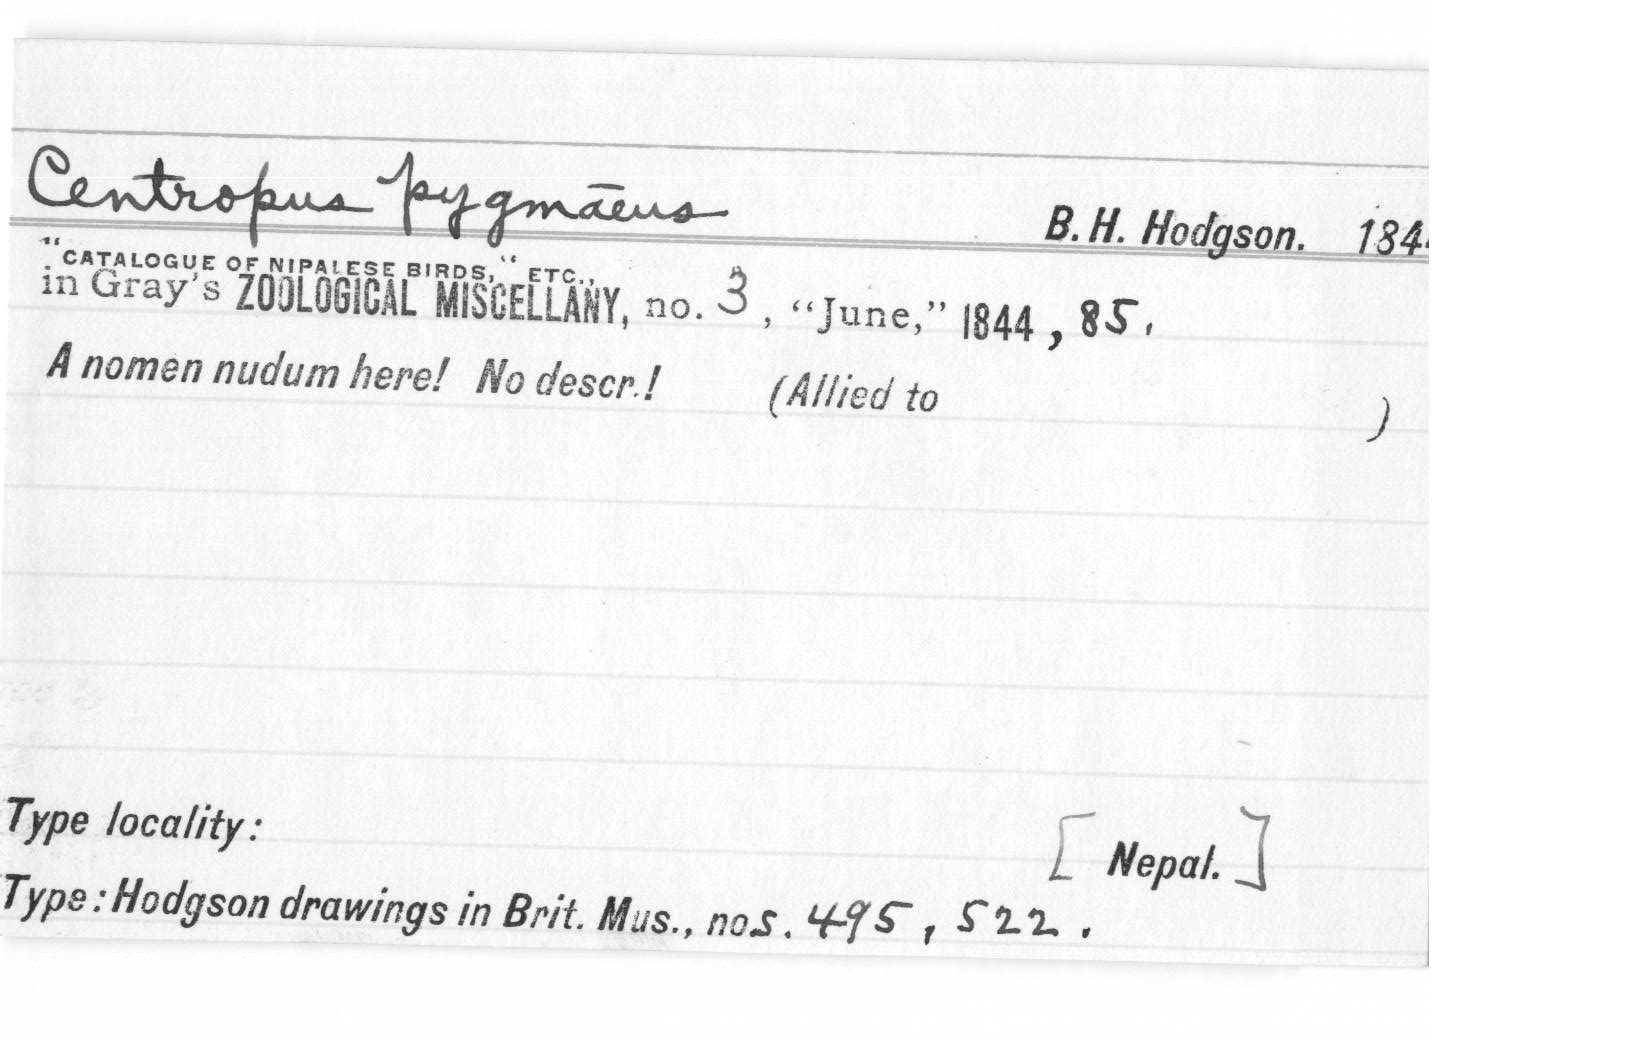 Centropus pygmāeus B. H. Hodgson. 184
"CATALOGUE OF NIPALESE BIRDS," ETC.,
in Gray's ZOOLOGICAL MISCELLANY, no. 3, “June,” 1844, 85.
A nomen nudum here! No descr.! (Allied to )
Type locality: [Nepal.]
Type: Hodgson drawings in Brit. Mus., nos. 495, 522.